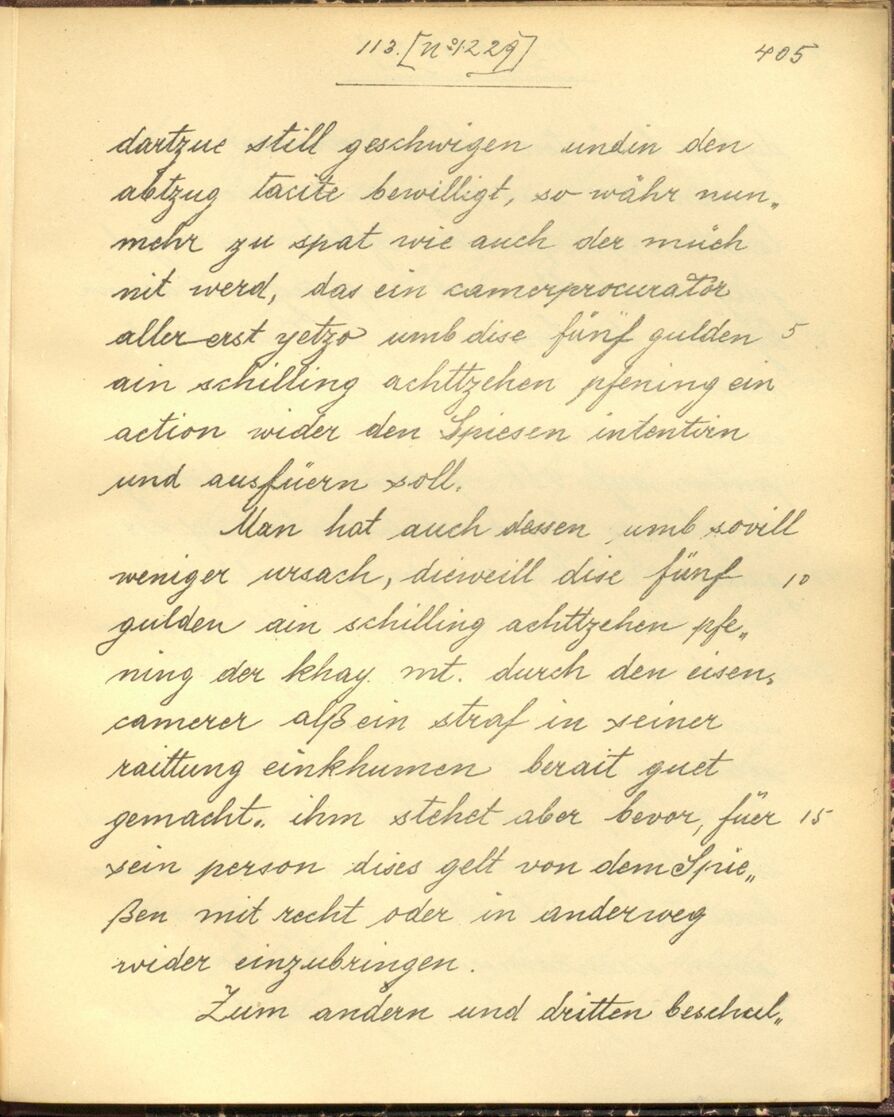 113. [No 1229] 405
dartzue still geschwigen undin den
abtzug tacite bewilligt, so währ nun„
mehr zu spat wie auch der müeh
nit werd, das ein camerprocurator
aller erst yetzo umb dise fünf gulden 5
ain schilling achttzehen pfening ein
action wider den Spiesen intentirn
und ausfüern soll.
Man hat auch dessen umb sovill
weniger ursach, dieweill dise fünf 10
gulden ain schilling achttzehen pfe„
ning der khay. mt. durch den eisen„
camerer alß ein straf in seiner
raittung einkhumen berait guet
gemacht. ihm stehet aber bevor, füer 15
sein person dises gelt von dem Spie„
ßen mit recht oder in anderweg
wider einzubringen.
Zum andern und dritten beschul„